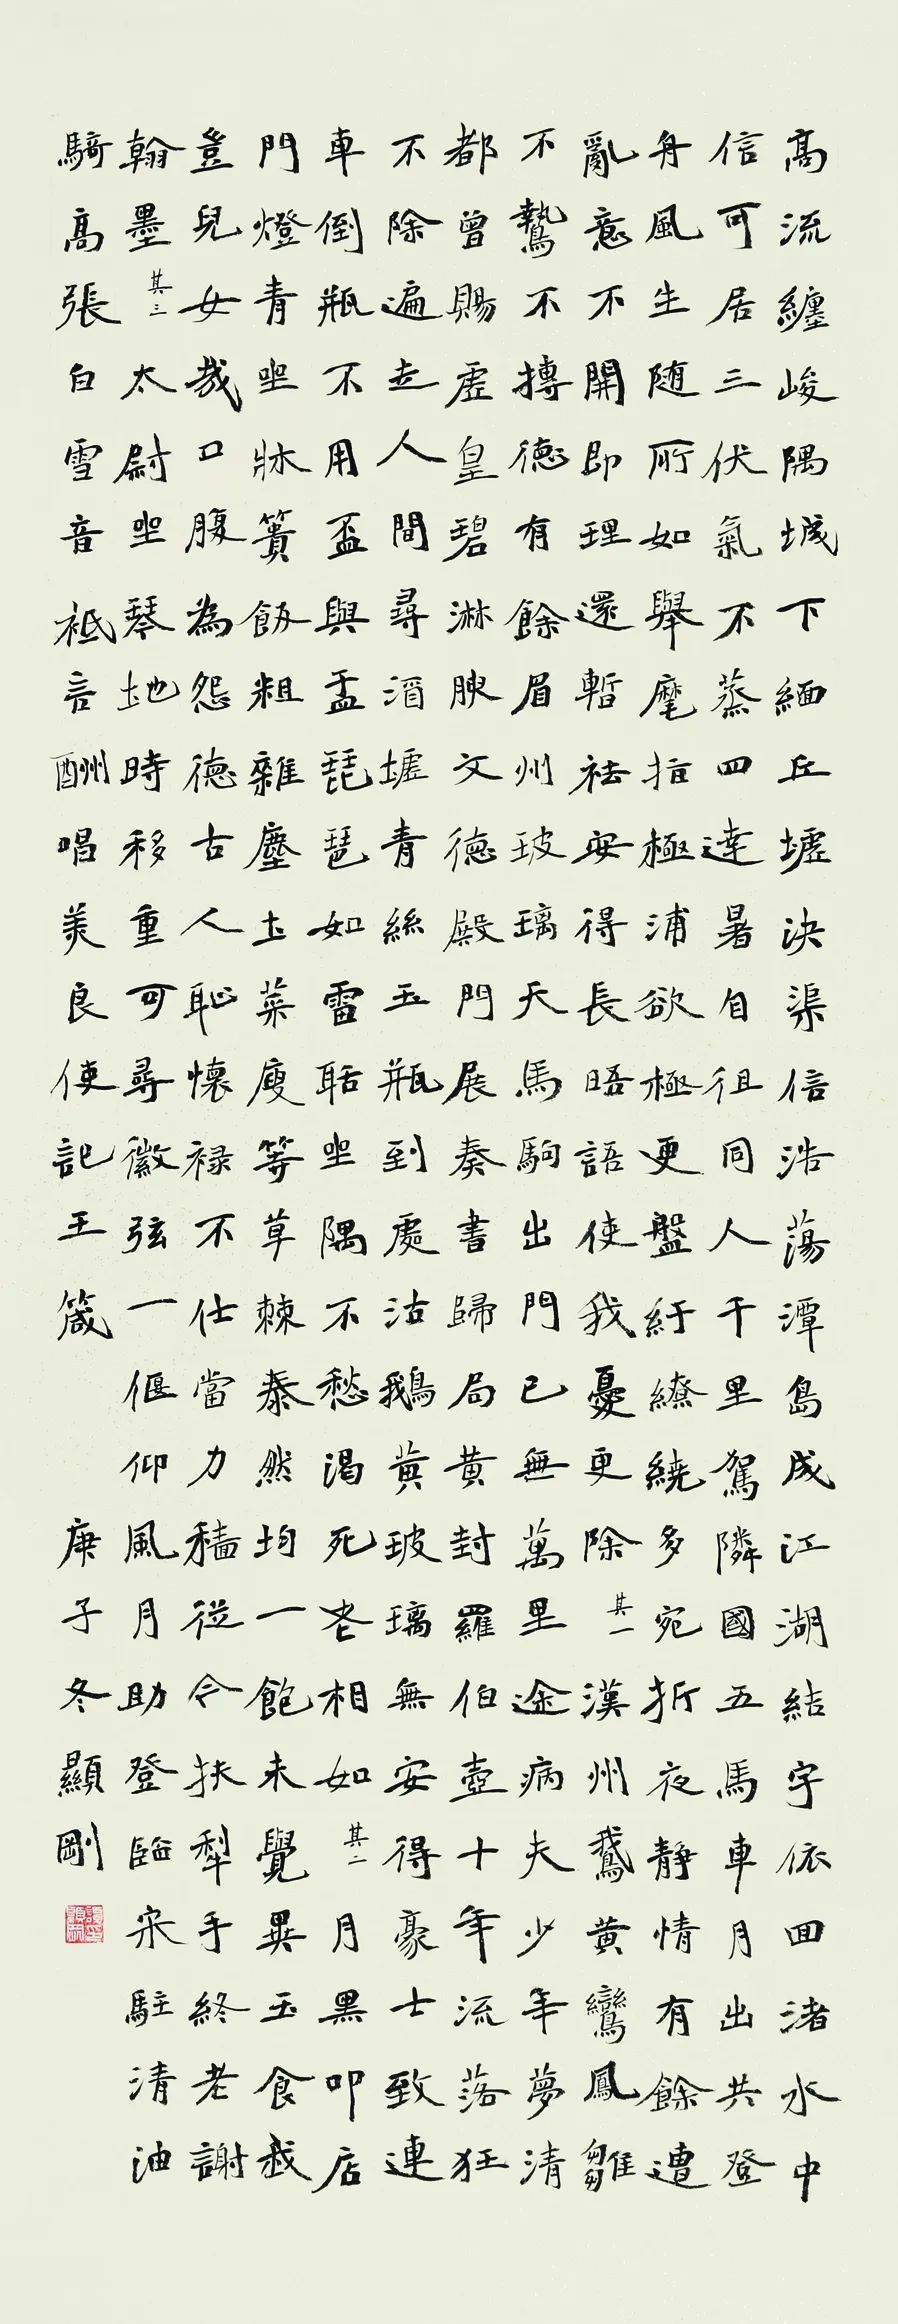 高流纏峻隅城下緬丘墟決渠信浩蕩潭島成江湖結宇依回渚水中
信可居三伏氣不蒸四達暑自徂同人千里駕隣國五馬車月出共登
舟風生随所如舉麾指極浦欲極更盤紆繚繞多宛折夜静情有餘遭
亂意不開即理還暫祛安得長晤語使我憂更除其一漢州鵝黃鸞鳳雛
不鷙不摶德有餘眉州玻璃天馬駒出門已無萬里途病夫少年夢清
都曾賜虚皇碧淋腴文德殿門展奏書歸局黄封羅伯壺十年流落狂
不除遍走人間尋酒壚青絲玉瓶到處沽鵝黄玻璃無安得豪士致連
車倒瓶不用盃與盂琵琶如雷聒坐隅不愁渴死老相如其二月黑叩店
門燈青坐牀簀飯粗雜塵土菜瘦等草棘泰然均一飽未覺異玉食我
豈兒女哉口腹為怨德古人恥懷禄不仕當力穡從令扶犁手終老謝
翰墨其三太尉坐琴地時移重可尋徽弦一偃仰風月助登臨宋駐清油
騎高張白雪音祗言酬唱美良使記王箴 庚子冬顯剛